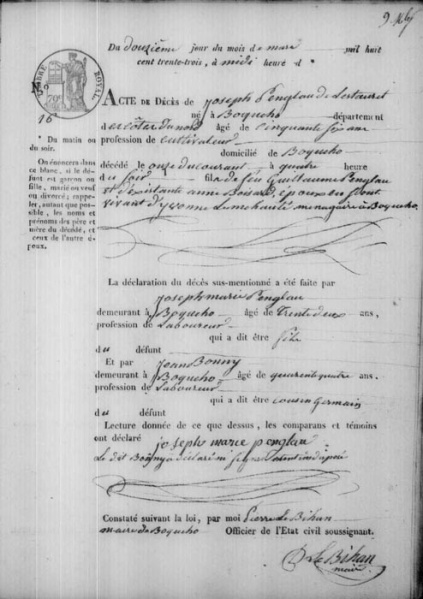 Du douzième jour du mois de mars mil huit
cent trente-trois, à midi heure d
TIMBRE ROYAL
N.º
16
ACTE DE DÉCÈS de joseph Penglau de Lestauret
né à Boqueho département
des côtes du nord âgé de cinquante six ans
profession de cultivateur
domicilié de Boqueho
décédé le onze du courant à quatre heure
du soir fils de feu Guillaume Penglau
et d'existante anne époux du
vivant d'yvonne ménagère à Boqueho
* Du matin ou
du soir.
On énoncera dans
ce blanc, si le dé-
funt est garçon ou
fille, marié ou veuf
ou divorcé; rappe-
ler, autant que pos-
sible, les noms et
prénoms des père et
mère du décédé, et
ceux de l'autre é-
poux.
La déclaration du décès sus-mentionné a été faite par
joseph marie Penglau
demeurant à Boqueho âgé de trente deux ans,
profession de Laboureur
qui a dit être fils
du défunt
Et par jean Bonny
demeurant à Boqueho âgé de quarente quatre ans,
profession de Laboureur
qui a dit être cousin Germain
du défunt
Lecture donnée de ce que dessus, les comparans et témoins
ont déclaré joseph marie penglau
Le dit Bonny a déclaré ne
Constaté suivant la loi, par moi Pierre Le Bihan
maire de Boqueho Officier de l'Etat civil soussignant.
Le Bihan
maire